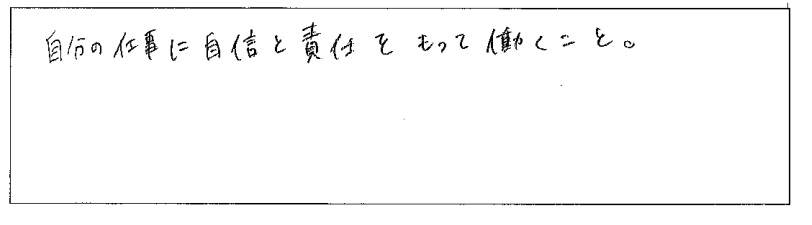 自分の仕事に自信と責任をもって働くこと。